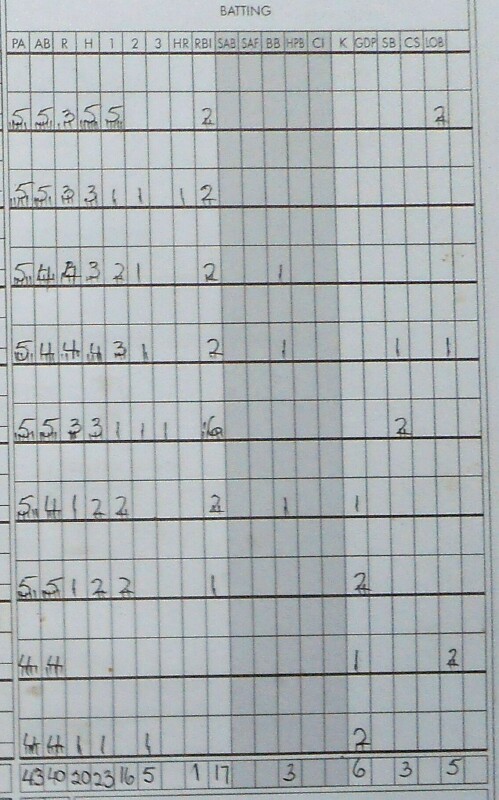 BATTING
PA AB R H 1 2 3 HR RBI SAB SAF BB HPB CI K GDP SB CS LOB
5 5 3 5 5 2 2
5 5 3 3 1 1 1 2
5 4 4 3 2 1 2 1
5 4 4 4 3 1 2 1 1 1
5 5 3 3 1 1 1 6 2
5 4 1 2 2 2 1 1
5 5 1 2 2 1 2
4 4 1 2
4 4 1 1 1 2
43 40 20 23 16 5 1 17 3 6 3 5